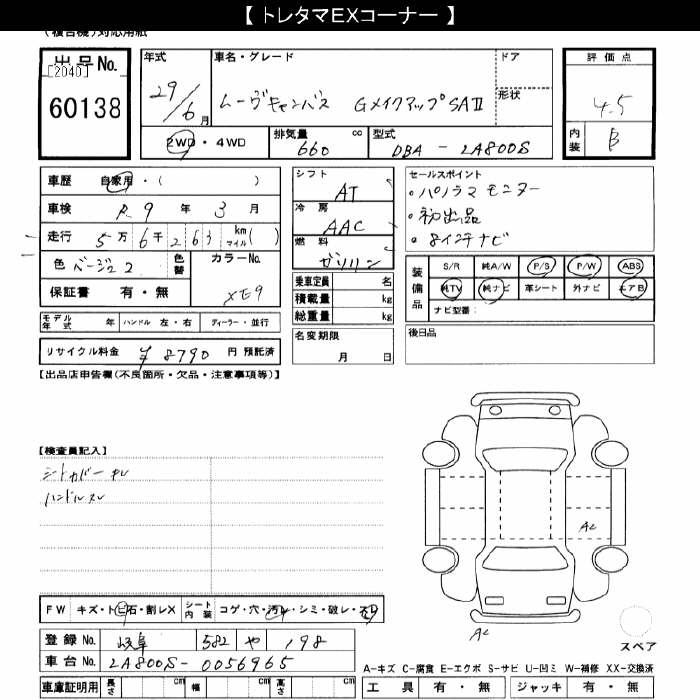 【 トレタマEXコーナー 】
(複合機)対応用紙
出品No.
[2040]
60138
年式 車名・グレード ドア
29/6月 ムーヴキャンバス GメイクアップSAⅡ 形状
2WD・4WD 排気量 660 cc 型式 DBA - LA800S
評価点
4.5
内装 B
車歴 自家用・( )
車検 R 9 年 3 月
走行 5万6千263 km マイル( )
色 ベージュ2 色替 カラーNo.
保証書 有・無 XE9
モデル年式 年 ハンドル 左・右 ディーラー・並行
リサイクル料金 ¥8790 円 預託済
シフト AT
冷房 AAC
燃料 ガソリン
乗車定員 名
積載量 kg
総重量 kg
名変期限
月 日
セールスポイント
・パノラマモニター
・初出品
・8インチナビ
装備品 S/R 純A/W P/S P/W ABS
純TV 純ナビ 革シート 外ナビ エアB
ナビ型番:
後日品
【出品店申告欄(不良箇所・欠品・注意事項等)】
【検査員記入】
シートカバー
ハンドルスレ
A2
A2
スペア
FW キズ・トビ石・割レX シート内装 コゲ・穴・汚レ・シミ・破レ・スレ
登録No. 岐阜 582 や 198
車台No. LA800S-0056965
車庫証明用 長さ cm 幅 cm 高さ cm
A-キズ C-腐食 E-エクボ S-サビ U-凹ミ W-補修 XX-交換済
工具 有・無 ジャッキ 有・無